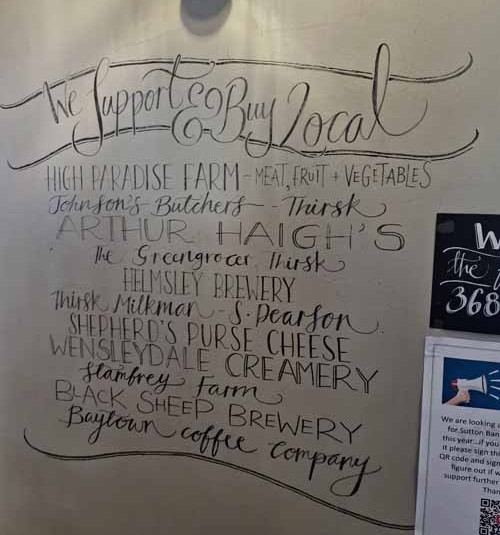 We Support & Buy Local
HIGH PARADISE FARM - MEAT, FRUIT + VEGETABLES
Johnson's Butchers - Thirsk
ARTHUR HAIGH'S
The Greengrocer, Thirsk
HELMSLEY BREWERY
Thirsk Milkman - S. Pearson
SHEPHERD'S PURSE CHEESE
WENSLEYDALE CREAMERY
Stamfrey Farm
BLACK SHEEP BREWERY
Baytown coffee company
W
the
368
We are looking
for Sutton Ban
this year...if you
it please sign thi
QR code and sign
figure out if w
support further
Than